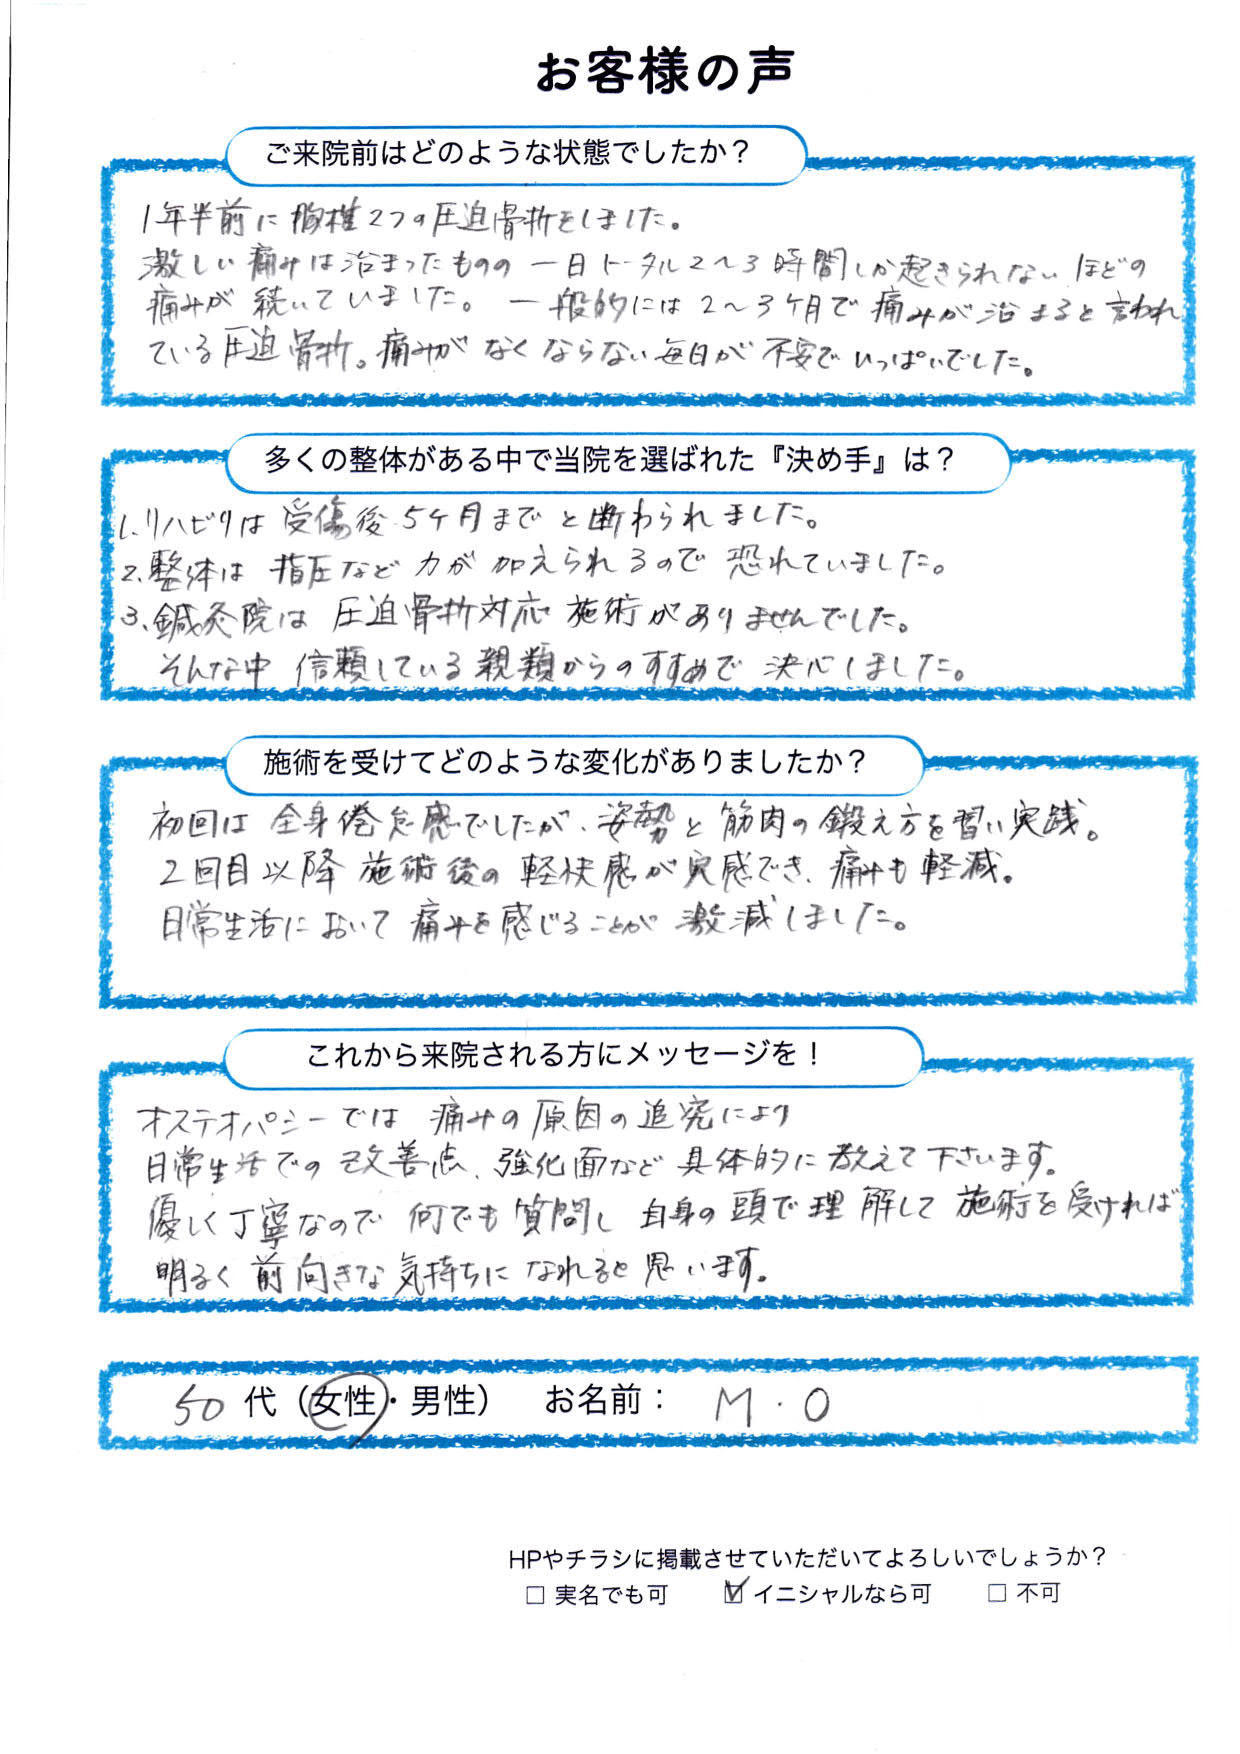 お客様の声
ご来院前はどのような状態でしたか？
1年半前に胸椎2つの圧迫骨折をしました。
激しい痛みは治まったものの 一日トータル2〜3時間しか起きられないほどの
痛みが続いていました。一般的には2〜3ヶ月で痛みが治まると言われ
ている圧迫骨折。痛みがなくならない毎日が不安でいっぱいでした。
多くの整体がある中で当院を選ばれた『決め手』は？
1.リハビリは受傷後5ヶ月までと断わられました。
2.整体は指圧など力が加えられるので恐れていました。
3、鍼灸院は圧迫骨折対応施術がありませんでした。
そんな中 信頼している親類からのすすめで決心しました。
施術を受けてどのような変化がありましたか？
初回は全身倦怠感でしたが、姿勢と筋肉の鍛え方を習い実践。
2回目以降施術後の軽快感が実感でき、痛みも軽減。
日常生活において痛みを感じることが激減しました。
これから来院される方にメッセージを！
オステオパシーでは痛みの原因の追究により
日常生活での改善点、強化面など具体的に教えて下さいます。
優しく丁寧なので何でも質問し自身の頭で理解して施術を受ければ
明るく前向きな気持ちになれると思います。
50代（女性・男性） お名前： M・O
HPやチラシに掲載させていただいてよろしいでしょうか？
□ 実名でも可 ☑ イニシャルなら可 □ 不可